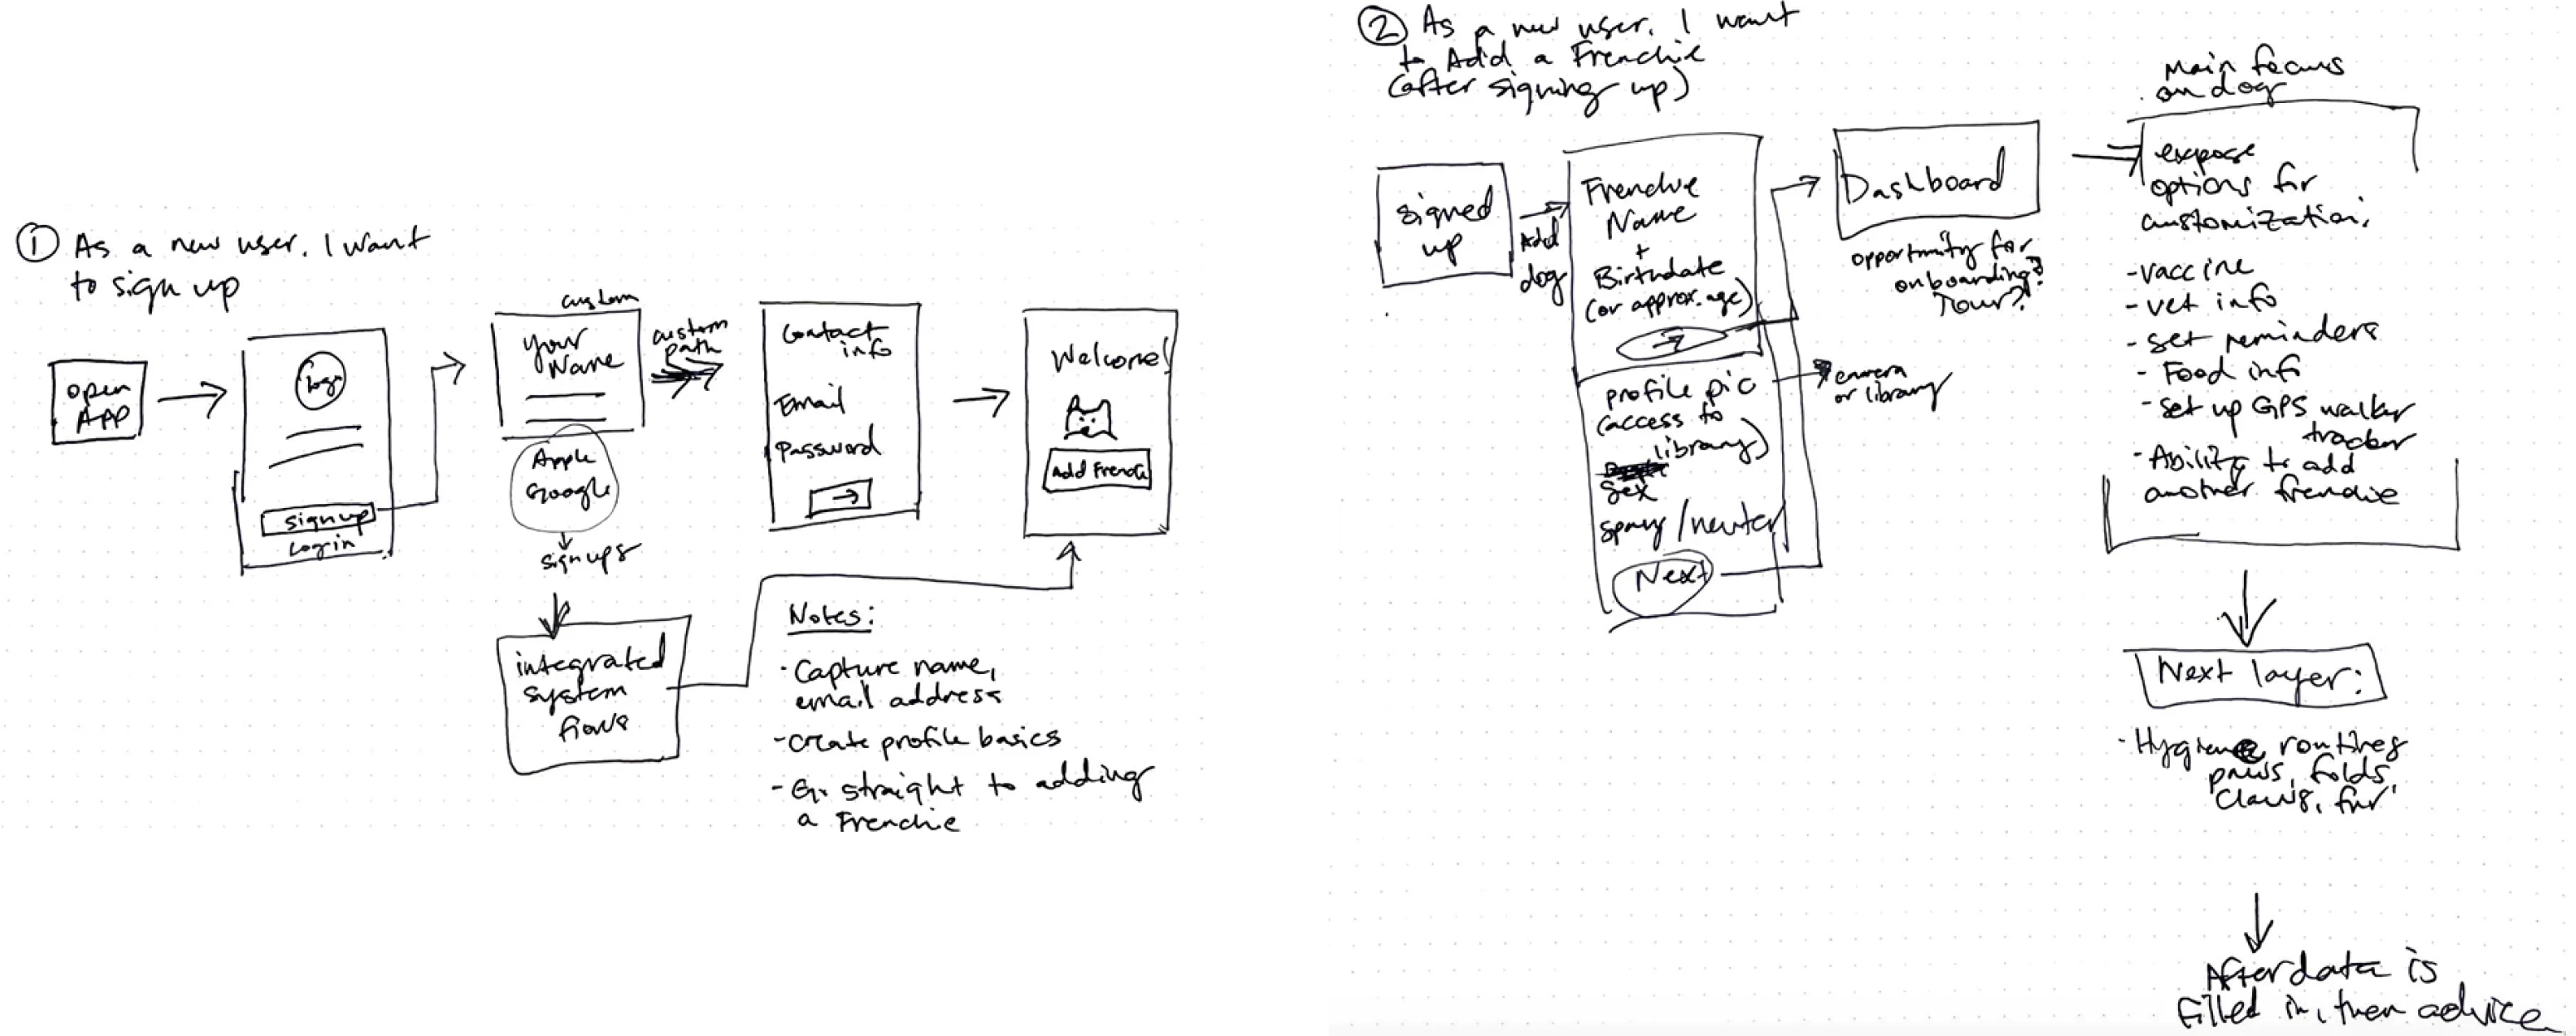 ① As a new user, I want
to sign up
open
APP
logo
sign up
login
custom
Your
Name
Apple
Google
sign ups
integrated
system
flows
custom
path
Contact
info
Email
Password
Welcome!
Add Frenchie
Notes:
· Capture name,
email address
- Create profile basics
- Go straight to adding
a Frenchie
② As a new user, I want
to Add a Frenchie
(after signing up)
signed
up
Add
dog
Frenchie
Name
+
Birthdate
(or approx. age)
profile pic
(access to
library)
Sex
spay/neuter
Next
camera
or library
Dashboard
opportunity for
onboarding?
Tour?
Main focus
on dog
expose
options for
customization:
- vaccine
- vet info
- set reminders
- Food info
- set up GPS walker
tracker
- Ability to add
another frenchie
Next layer:
· Hygiene routines
paws, folds,
claws, fur
After data is
filled in, then advice